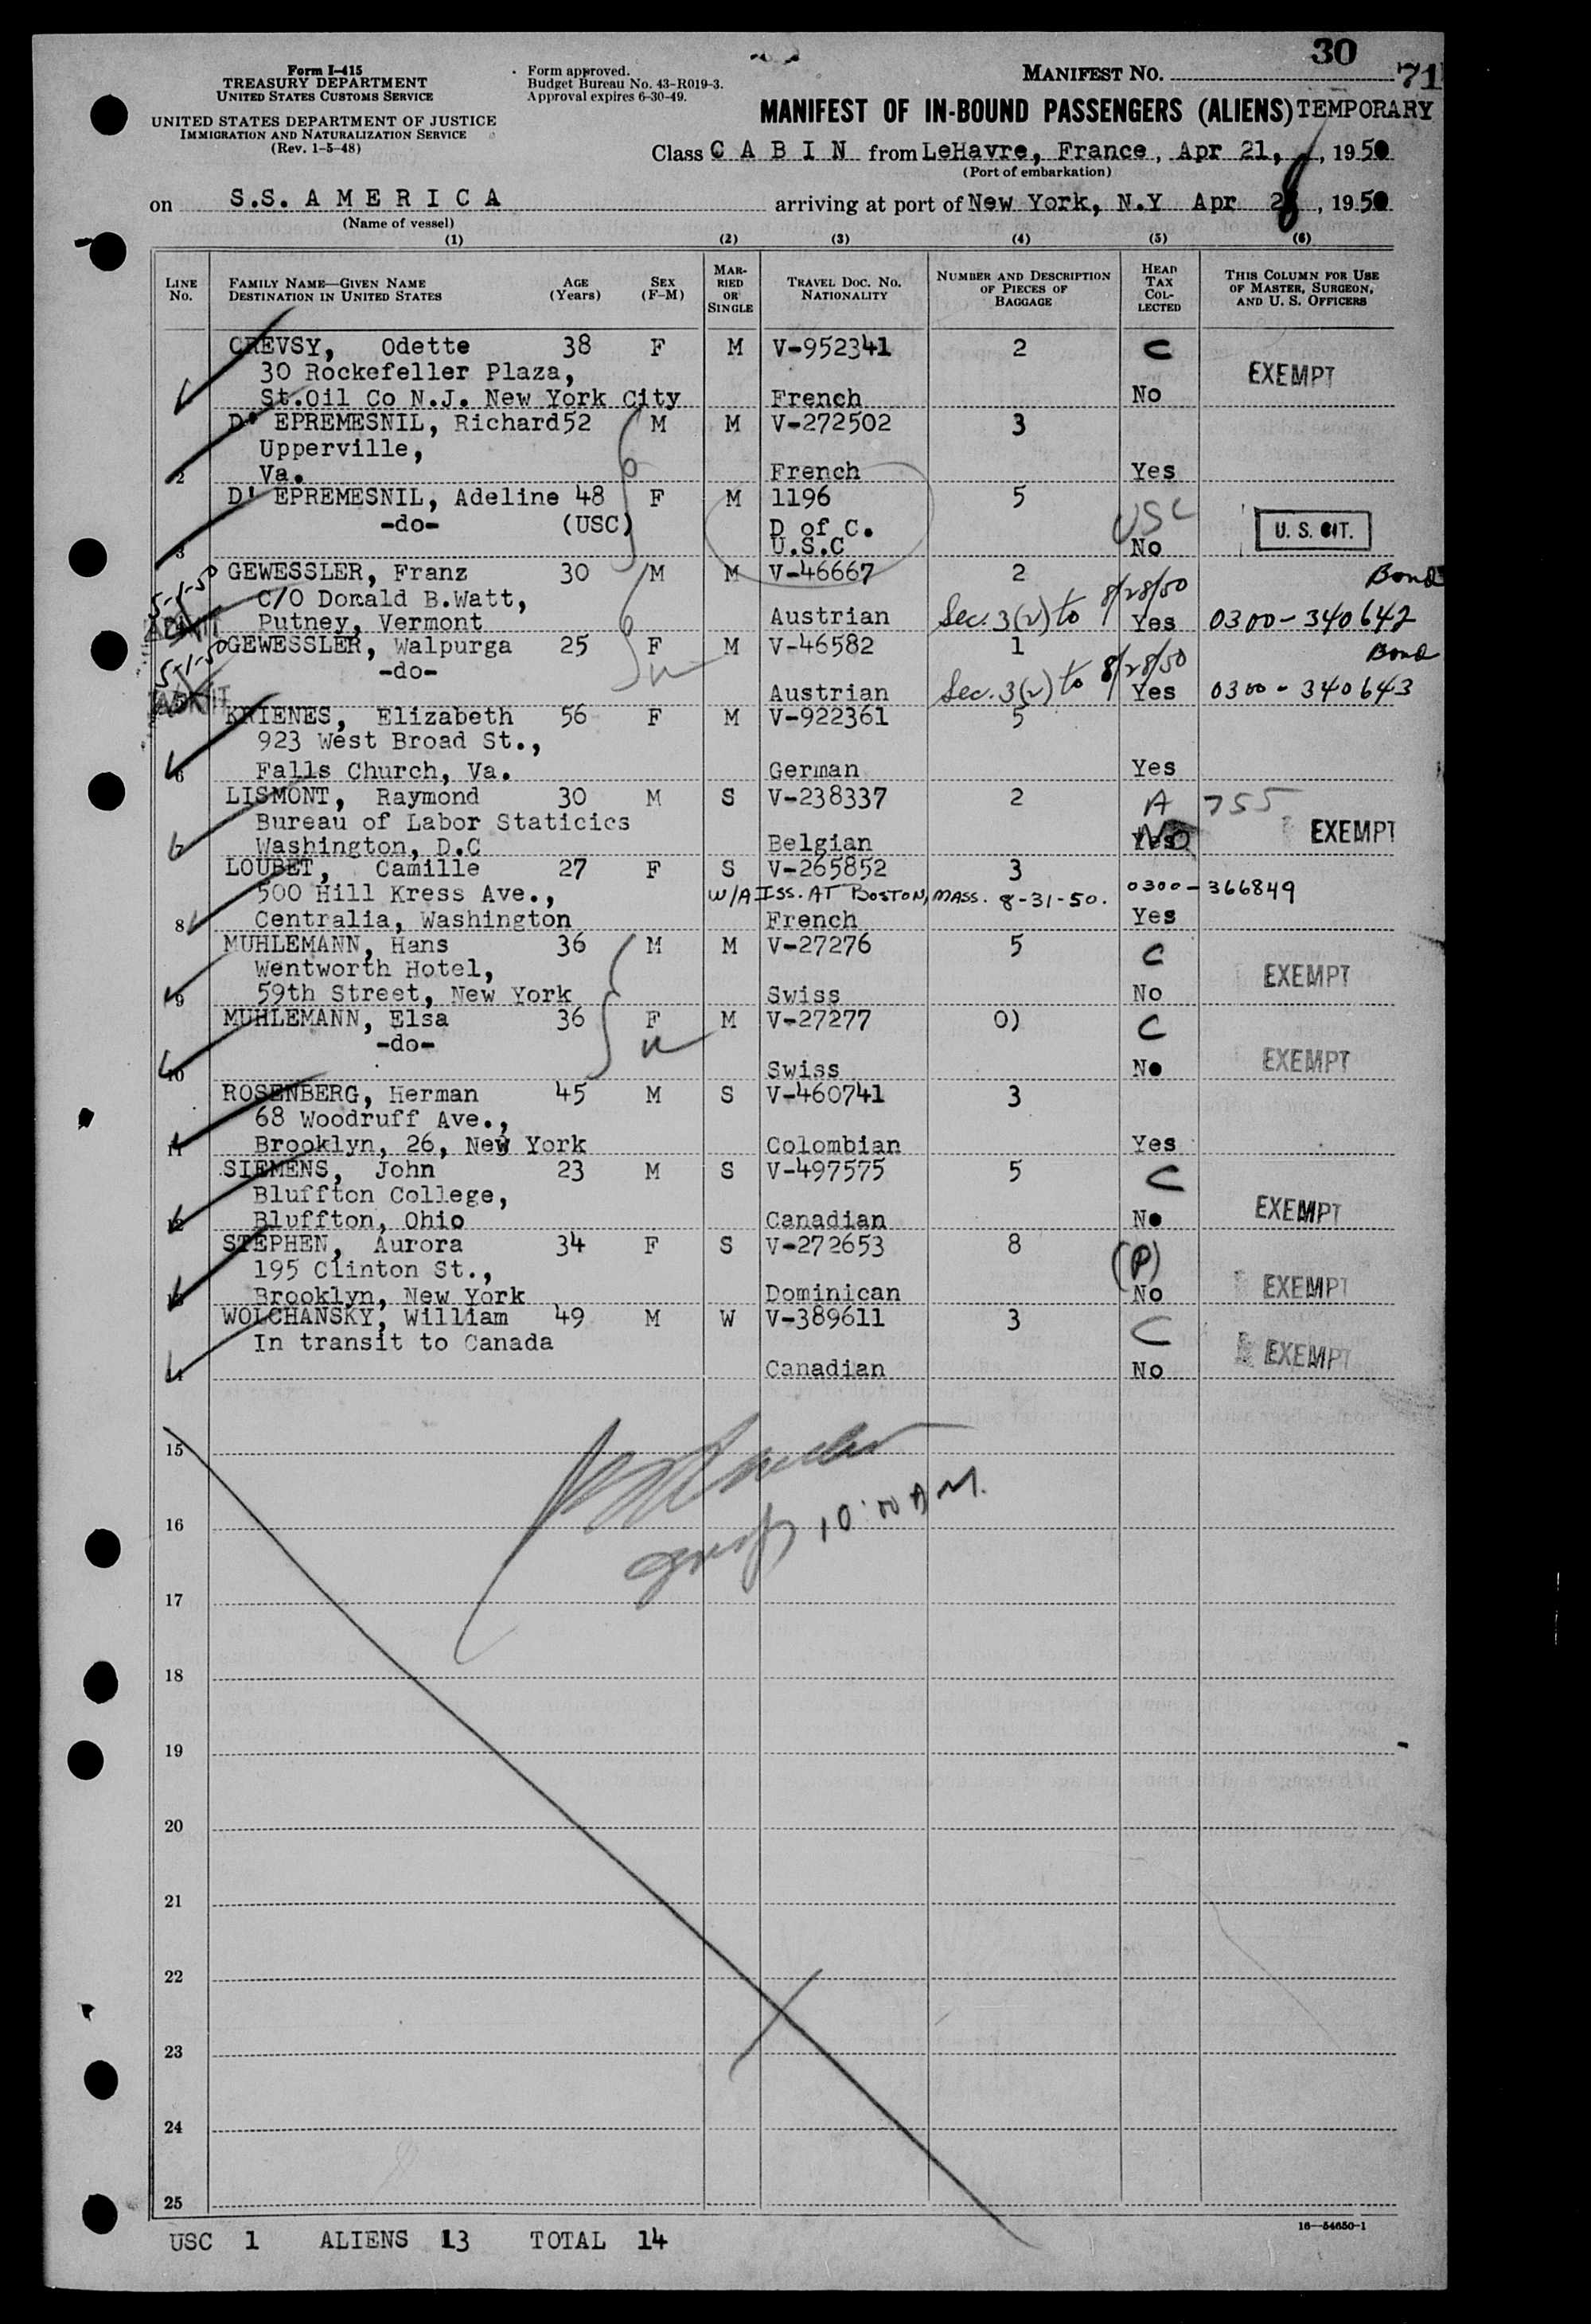 30
71
Form I-415
TREASURY DEPARTMENT
UNITED STATES CUSTOMS SERVICE
UNITED STATES DEPARTMENT OF JUSTICE
IMMIGRATION AND NATURALIZATION SERVICE
(Rev. 1-5-48)
Form approved.
Budget Bureau No. 43-R019-3.
Approval expires 6-30-49.
MANIFEST NO.
MANIFEST OF IN-BOUND PASSENGERS (ALIENS) TEMPORARY
Class C A B I N from LeHavre, France, Apr 21, , 1950
(Port of embarkation)
on S.S. A M E R I C A arriving at port of New York, N.Y Apr 28, 1950
(Name of vessel)
(1) (2) (3) (4) (5) (6)
LINE No. FAMILY NAME—GIVEN NAME DESTINATION IN UNITED STATES AGE (Years) SEX (F-M) MARRIED OR SINGLE TRAVEL DOC. NO. NATIONALITY NUMBER AND DESCRIPTION OF PIECES OF BAGGAGE HEAD TAX COLLECTED THIS COLUMN FOR USE OF MASTER, SURGEON, AND U. S. OFFICERS
CREVSY, Odette 38 F M V-952341 2 C
30 Rockefeller Plaza, EXEMPT
St.Oil Co N.J. New York City French No
D' EPREMESNIL, Richard 52 M M V-272502 3
Upperville,
2 Va. French Yes
D' EPREMESNIL, Adeline 48 F M 1196 5 USC
-do- (USC) D of C. U. S. CIT.
3 U.S.C No
GEWESSLER, Franz 30 M M V-46667 2 Bond
5-1-50 C/O Donald B.Watt, 8/28/50
ADMIT Putney, Vermont Austrian Sec. 3(2) to Yes 0300-340642
GEWESSLER, Walpurga 25 F M V-46582 1 Bond
5-1-50 -do- 8/28/50
ADMIT Austrian Sec. 3(2) to Yes 0300-340643
KRIENES, Elizabeth 56 F M V-922361 5
923 West Broad St.,
6 Falls Church, Va. German Yes
LISMONT, Raymond 30 M S V-238337 2 A 755
Bureau of Labor Staticics EXEMPT
7 Washington, D.C Belgian Yes No
LOUBET, Camille 27 F S V-265852 3
500 Hill Kress Ave., W/A ISS. AT BOSTON, MASS. 8-31-50. 0300-366849
8 Centralia, Washington French Yes
MUHLEMANN, Hans 36 M M V-27276 5 C
Wentworth Hotel, EXEMPT
9 59th Street, New York Swiss No
MUHLEMANN, Elsa 36 F M V-27277 0) C
-do- EXEMPT
10 Swiss No
ROSENBERG, Herman 45 M S V-460741 3
68 Woodruff Ave.,
11 Brooklyn, 26, New York Colombian Yes
SIEMENS, John 23 M S V-497575 5 C
Bluffton College, EXEMPT
12 Bluffton, Ohio Canadian No
STEPHEN, Aurora 34 F S V-272653 8 (P)
195 Clinton St., EXEMPT
13 Brooklyn, New York Dominican No
WOLCHANSKY, William 49 M W V-389611 3 C
In transit to Canada EXEMPT
14 Canadian No
15
16 10:00 AM.
17
18
19
20
21
22
23
24
25
16—54650-1
USC 1 ALIENS 13 TOTAL 14